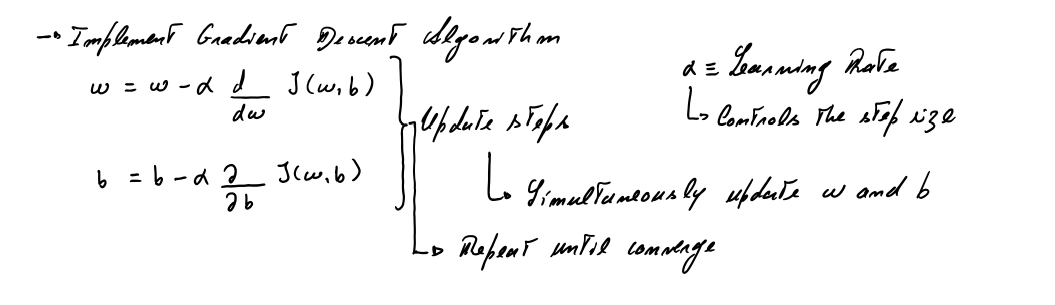 → Implement Gradient Descent Algorithm
w = w - α d/dw J(w,b)
b = b - α ∂/∂b J(w,b)
Update steps
↳ Simultaneously update w and b
→ Repeat until converge
α ≡ Learning Rate
↳ Controls the step size